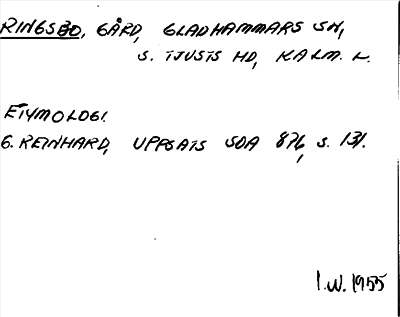 RINGSBO, GÅRD, GLADHAMMARS SN,
S. TJUSTS HD, KALM. L.
ETYMOLOGI.
G. REINHARD, UPPSATS SOA 876, S. 131.
I.W. 1955